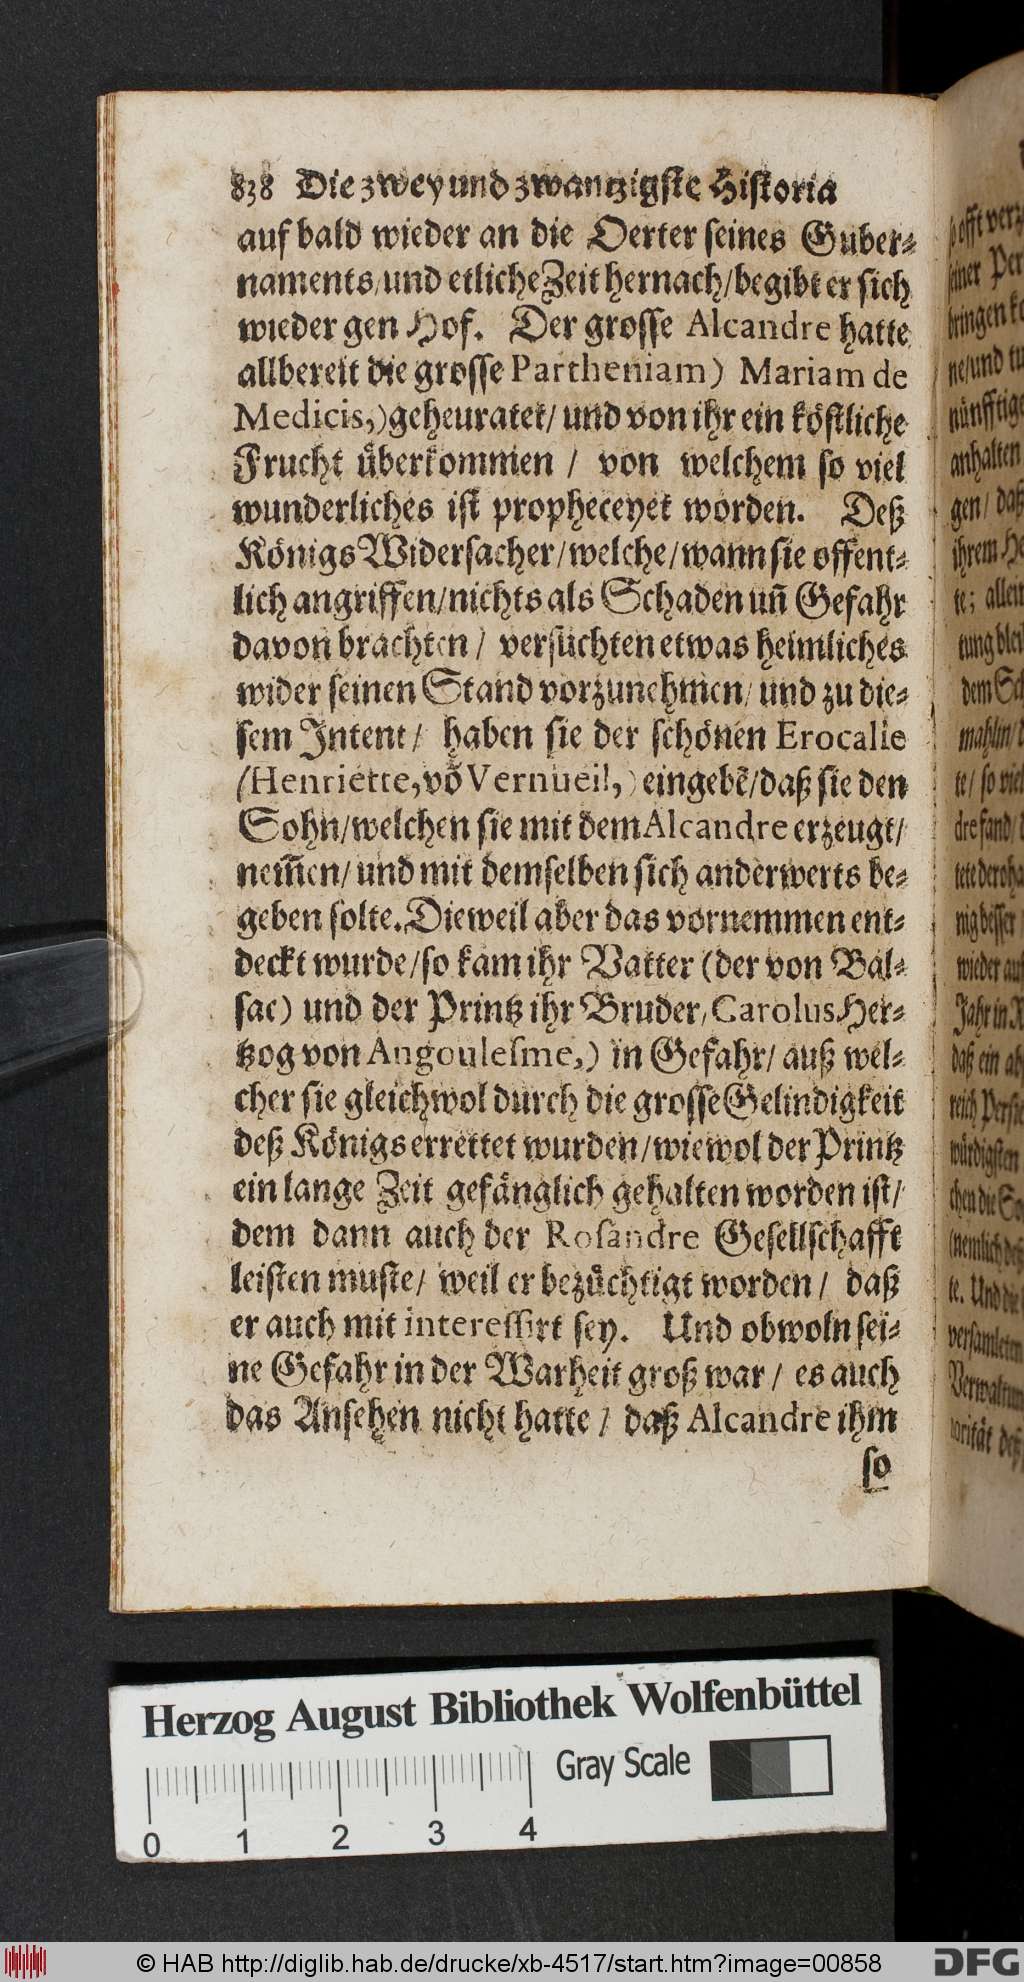 838 Die zwey und zwantzigste Historia
auf bald wieder an die Oerter seines Guber⸗
naments/und etliche Zeit hernach/begibt er sich
wieder gen Hof. Der grosse Alcandre hatte
allbereit die grosse Partheniam) Mariam de
Medicis,) geheuratet/ und von ihr ein köstliche
Frucht überkommen / von welchem so viel
wunderliches ist propheceyet worden. Deß
Königs Widersacher/welche/wann sie offent⸗
lich angriffen/nichts als Schaden uñ Gefahr
davon brachten / versuchten etwas heimliches
wider seinen Stand vorzunehmen/ und zu die⸗
sem Intent / haben sie der schönen Erocalie
(Henriette, võ Vernueil,) eingebẽ/daß sie den
Sohn/welchen sie mit dem Alcandre erzeugt/
nem̃en/ und mit demselben sich anderwerts be⸗
geben solte. Dieweil aber das vornemmen ent⸗
deckt wurde/so kam ihr Vatter (der von Bal⸗
sac) und der Printz ihr Bruder, Carolus Her⸗
tzog von Angoulesme,) in Gefahr/ auß wel⸗
cher sie gleichwol durch die grosse Gelindigkeit
deß Königs errettet wurden/wiewol der Printz
ein lange Zeit gefänglich gehalten worden ist/
dem dann auch der Rosandre Gesellschafft
leisten muste/ weil er bezüchtigt worden / daß
er auch mit interessirt sey. Und obwoln sei⸗
ne Gefahr in der Warheit groß war / es auch
das Ansehen nicht hatte / daß Alcandre ihm
so
so offt
seiner Per
bringen
ne/und
anhalten
gen/ daß
ihrem
te; allein
tung
dem
te/ so viel
dre fand/
wieder auf
Jahr in
daß ein
reich
würdigsten
chen die
te. Und die
Herzog August Bibliothek Wolfenbüttel
Gray Scale
0 1 2 3 4
© HAB http://diglib.hab.de/drucke/xb-4517/start.htm?image=00858
DFG